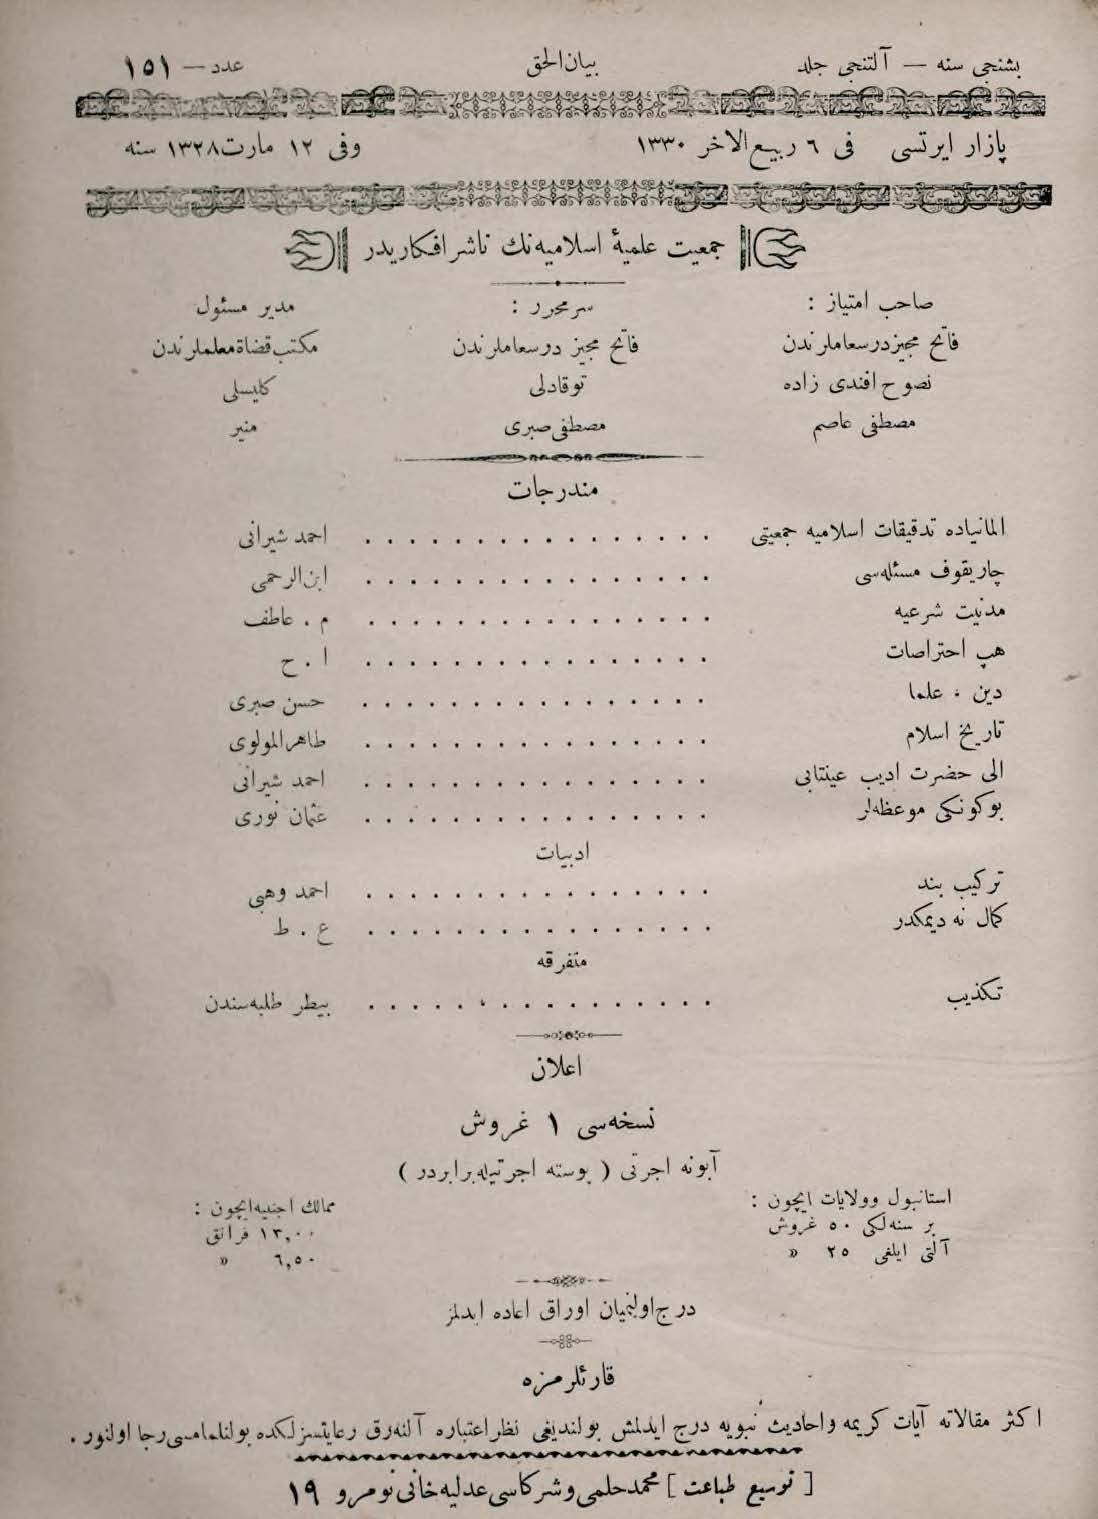 بشنجی سنه — آلتنجی جلد بیان الحق عدد — ١٥١
پازار ایرتسی فی ٦ ربیع الاخر ١٣٣٠ وفی ١٢ مارت ١٣٢٨ سنه
جمعیت علمیۀ اسلامیه نك ناشر افکاریدر
صاحب امتیاز : سرمحرر : مدیر مسئول
فاتح مجیز درسعاملرندن فاتح مجیز درسعاملرندن مکتب قضاة معلملرندن
نصوح افندی زاده توقادلی کلیسلی
مصطفی عاصم مصطفی صبری منیر
مندرجات
المانیاده تدقیقات اسلامیه جمعیتی . . . . . . . . . . . . . . . . احمد شیرانی
چاریقوف مسئله سی . . . . . . . . . . . . . . . . ابن الرحمی
مدنیت شرعیه . . . . . . . . . . . . . . . . م . عاطف
هپ احتراصات . . . . . . . . . . . . . . . . ا . ح
دین ، علما . . . . . . . . . . . . . . . . حسن صبری
تاریخ اسلام . . . . . . . . . . . . . . . . طاهر المولوی
الی حضرت ادیب عینتابی . . . . . . . . . . . . . . . . احمد شیرانی
بوکونکی موعظه لر . . . . . . . . . . . . . . . . عثمان نوری
ادبیات
ترکیب بند . . . . . . . . . . . . . . . . احمد وهبی
کمال نه دیمکدر . . . . . . . . . . . . . . . . ع . ط
متفرقه
تکذیب . . . . . . . . . . . . . . . . بیطر طلبه سندن
اعلان
نسخه سی ١ غروش
آبونه اجرتی ( پوسته اجرتیله برابردر )
استانبول وولایات ایچون : ممالك اجنبیه ایچون :
بر سنه لکی ٥٠ غروش ١٣,٠٠ فرانق
آلتی ایلغی ٢٥ » ٦,٥٠ »
درج اولنمیان اوراق اعاده ایدلمز
قارئلرمزه
اکثر مقالاته آیات کریمه واحادیث نبویه درج ایدلمش بولندیغی نظر اعتباره آلنه رق رعایتسزلکده بولنلمامسی رجا اولنور .
[ توسیع طباعت ] محمد حلمی وشرکاسی عدلیه خانی نومرو ١٩